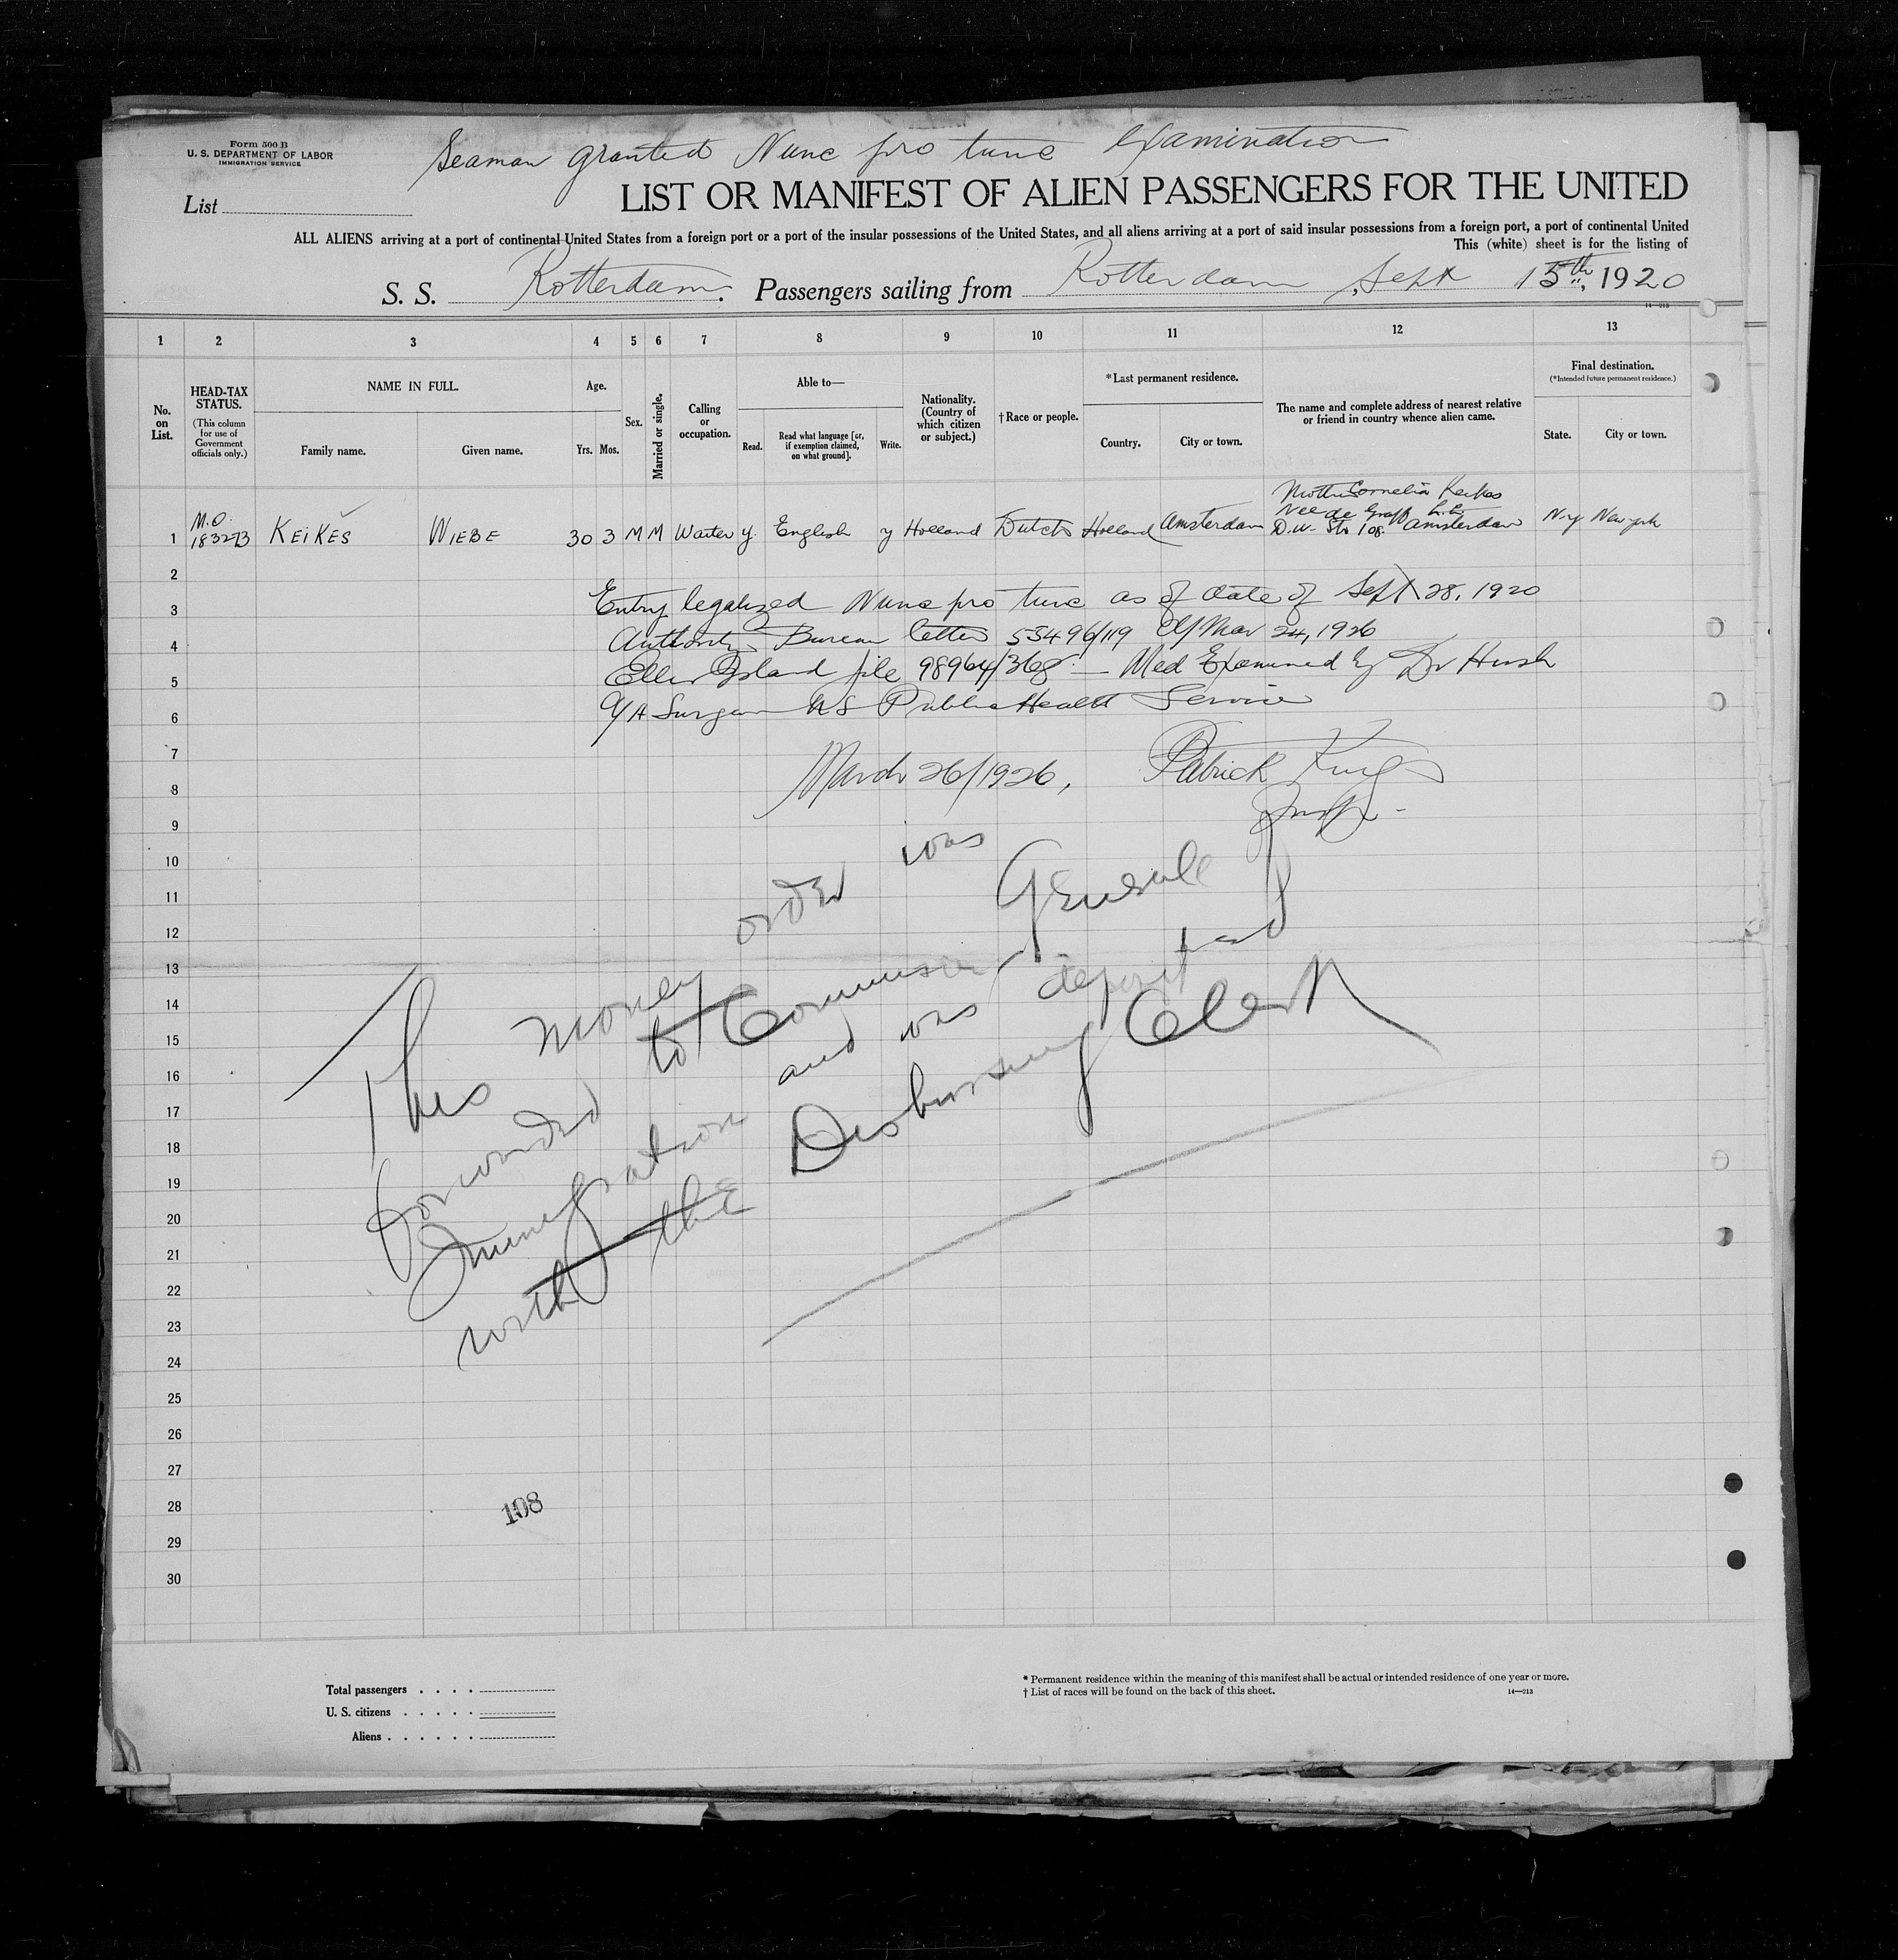 Form 500 B
U. S. DEPARTMENT OF LABOR
IMMIGRATION SERVICE
Seaman granted Nunc pro tunc Examination
List
LIST OR MANIFEST OF ALIEN PASSENGERS FOR THE UNITED
ALL ALIENS arriving at a port of continental United States from a foreign port or a port of the insular possessions of the United States, and all aliens arriving at a port of said insular possessions from a foreign port, a port of continental United
This (white) sheet is for the listing of
S. S. Rotterdam. Passengers sailing from Rotterdam, Sept 15th, 1920
14—213
1 2 3 4 5 6 7 8 9 10 11 12 13
No. on List.
HEAD-TAX STATUS.
(This column for use of Government officials only.)
NAME IN FULL.
Family name.
Given name.
Age.
Yrs. Mos.
Sex.
Married or single.
Calling or occupation.
Able to—
Read.
Read what language [or, if exemption claimed, on what ground].
Write.
Nationality. (Country of which citizen or subject.)
†Race or people.
*Last permanent residence.
Country.
City or town.
The name and complete address of nearest relative or friend in country whence alien came.
Final destination.
(*Intended future permanent residence.)
State.
City or town.
Mother Cornelia Keikes
M.O. Nee de Graff
1 1832-B KEIKES WIEBE 30 3 M M Waiter y English y Holland Dutch Holland Amsterdam D.W. Str 108. Amsterdam N.y New york
2
3 Entry legalized Nunc pro tunc as of date of Sept 28, 1920
4 Authority Bureau letter 55496/119 of Mar 24, 1926
5 Ellis Island file 98964/368 — Med Examined by Dr
6 Surgeon US Public Health Service
7
8 March 26/1926, Patrick King
Insp.
9
10
11
12
13
14
15
16
17
18
19
20
21
22
23
24
25
26
27
28
29
30
This money order was
forwarded to Commissioner General of
Immigration and was deposited
with the Disbursing Clerk
108
Total passengers
U. S. citizens
Aliens
* Permanent residence within the meaning of this manifest shall be actual or intended residence of one year or more.
† List of races will be found on the back of this sheet.
14—213